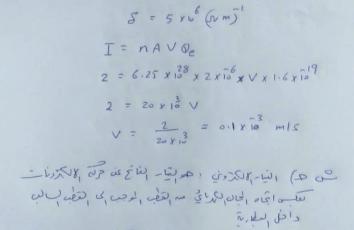 δ = 5 × 10⁶ (Ω m)⁻¹
I = n A V Qe
2 = 6.25 × 10²⁸ × 2 × 10⁻⁶ × V × 1.6 × 10⁻¹⁹
2 = 20 × 10³ V
V = 2 / 20 × 10³ = 0.1 × 10⁻³ m/s
التيار الالكتروني : هو التيار الناتج عن حركة الالكترونات
بعكس اتجاه المجال الكهربائي من القطب الموجب الى القطب السالب
داخل البطارية